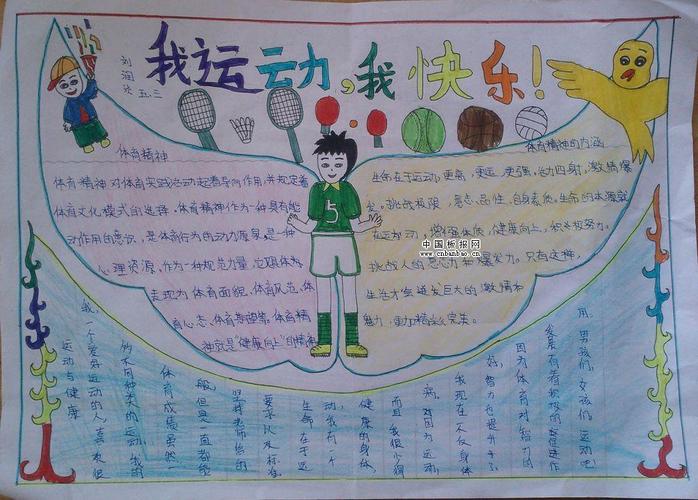 我运动,我快乐!
刘润欣
五.三
体育精神
体育精神对体育实践活动起着导向作用,并规定着
体育文化模式的选择。体育精神作为一种具有能
动作用的意识,是体育行为的动力源泉,是一种
心理资源。作为一种规范力量,它
表现为体育面貌,体育风范,体
育心态,体育希望等。体育精
神就是"健康向上"的精神
体育精神的内涵
生命在于运动,更高,更远,更强,活力四射,激情爆
发,挑战极限,意志,品性,自身素质,生命的本源就
在运动,增强体质,健康向上,积极努力,
挑战人的意志力和爆发力,只有这样,
生活才会迸发巨大的激情和
魅力,更加精彩完美。
中国板报网
www.cnbanbao.cn
5
运动与健康
我,一个爱好运动的人,喜欢很
多不同种类的运动,我的
体育成绩虽然一
般,但是一直都能
坚持老师给的
要求以及标准。
生命在于运
动,我有一个
健康的身体,
而且我很少得
病。因为运动,
我现在不仅身体
好,智力也提升了。
因为体育对智力的
发展有着积极的促进作
用。男孩们,女孩们,运动吧!